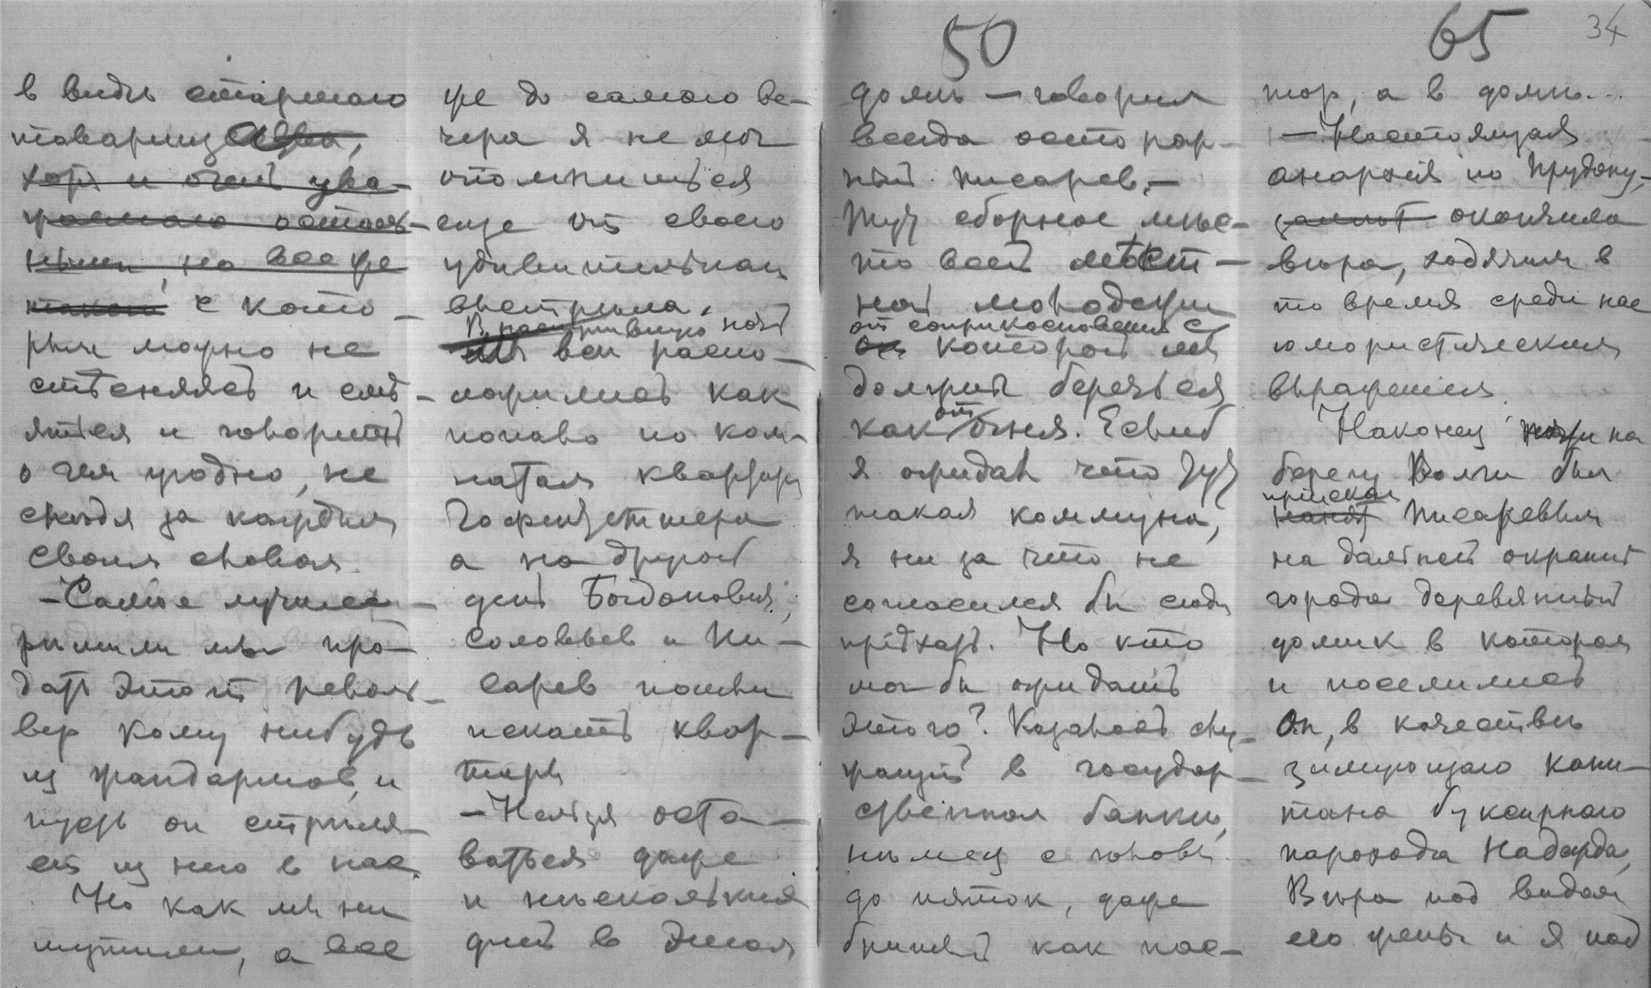 50
65
34
в видѣ старшаго
товарища
хотя и очень ува-
жаемаго
но все же
такой с кото-
рым можно не
стѣснять и смѣ-
яться и говорить
о чем угодно, не
слѣдя за каждым
своим словом.
— Самое лучшее —
рѣшили мы про-
дать этот револь-
вер кому нибудь
из жандармов, и
пусть он стрѣля-
ет из него в нас
Но как мы ни
шутили, а все
же до самого ве-
чера я не мог
опомниться
еще от своего
удивительнаго
выстрѣла.
В наступившую ночь
мы все распо-
ложились как
попало по ком-
натам квартиры
Гофенгштетера
а на другой
день Богданович,
Соловьев и Пи-
сарев пошли
искать квар-
тиры
— Нельзя оста-
ваться даже
и нѣсколькия
дней в этом
домѣ — говорил
всегда осторож-
ный Писарев, —
Тут сборное мѣс-
то всей мѣст-
ной молодежи
от соприкосновения с
которой мы
должны беречься
как от огня. Если б
я ожидал что тут
такая коммуна,
я ни за что не
согласился бы сюда
приѣхать. Но кто
мог бы ожидать
этого? Казалось слу-
жащий в государ-
ственном банкѣ,
нѣмец с головы
до пяток, даже
бритый как пас-
тор, а в домѣ...
— Настоящая
анархия по Прудону, —
окончила
Вѣра, ходячим в
то время среди нас
юмористическим
выражением.
Наконец на
берегу Волги был
приискан
нанят Писаревым
на дальней окраинѣ
города деревянный
домик в котором
и поселились
Он, в качествѣ
зимующаго капи-
тана буксирнаго
парохода Надежда,
Вѣра под видом
его жены и я под